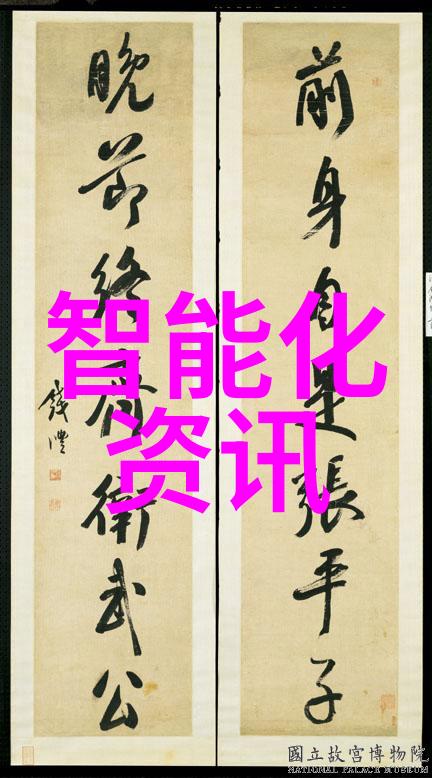 前身自是張平子
晚節終看衛武公
錢灃
智能化
资讯
國立故宮博物院
NATIONAL PALACE MUSEUM